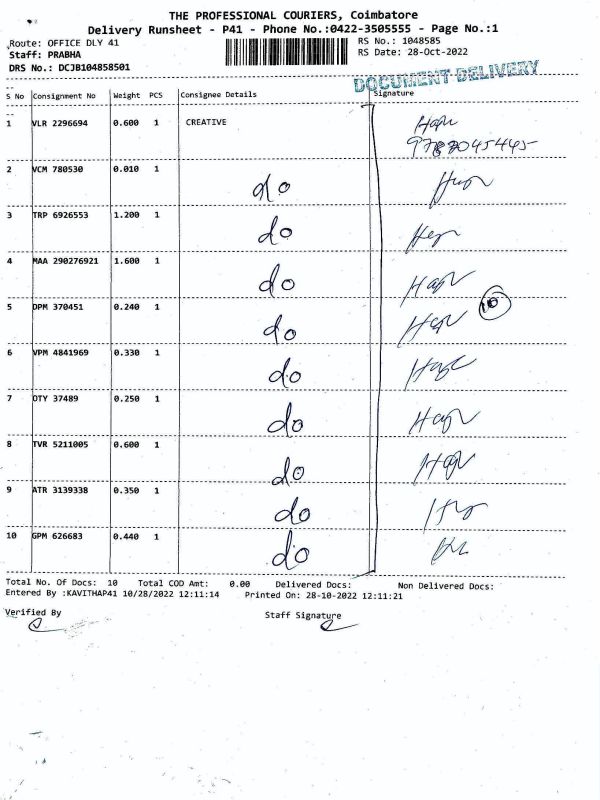 THE PROFESSIONAL COURIERS, Coimbatore
Delivery Runsheet - P41 - Phone No.:0422-3505555 - Page No.:1
Route: OFFICE DLY 41
Staff: PRABHA
DRS No.: DCJB104858501
RS No.: 1048585
RS Date: 28-Oct-2022
DOCUMENT DELIVERY
S No Consignment No Weight PCS Consignee Details Signature
1 VLR 2296694 0.600 1 CREATIVE
2 VCM 780530 0.010 1 do
3 TRP 6926553 1.200 1 do
4 MAA 290276921 1.600 1 do
5 DPM 370451 0.240 1 do 10
6 VPM 4841969 0.330 1 do
7 OTY 37489 0.250 1 do
8 TVR 5211005 0.600 1 do
9 ATR 3139338 0.350 1 do
10 GPM 626683 0.440 1 do
Total No. Of Docs: 10 Total COD Amt: 0.00 Delivered Docs: Non Delivered Docs:
Entered By :KAVITHAP41 10/28/2022 12:11:14 Printed On: 28-10-2022 12:11:21
Verified By Staff Signature